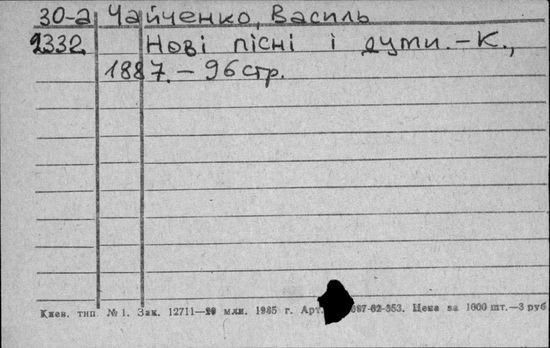 30-а Чайченко, Василь
2332 Нові пісні і думи. – К.,
1887. – 96 стр.
Киев. тип. № 1. Зак. 12711— млн. 1985 г. Арт. 087-02-353. Цена за 1000 шт.—3 руб